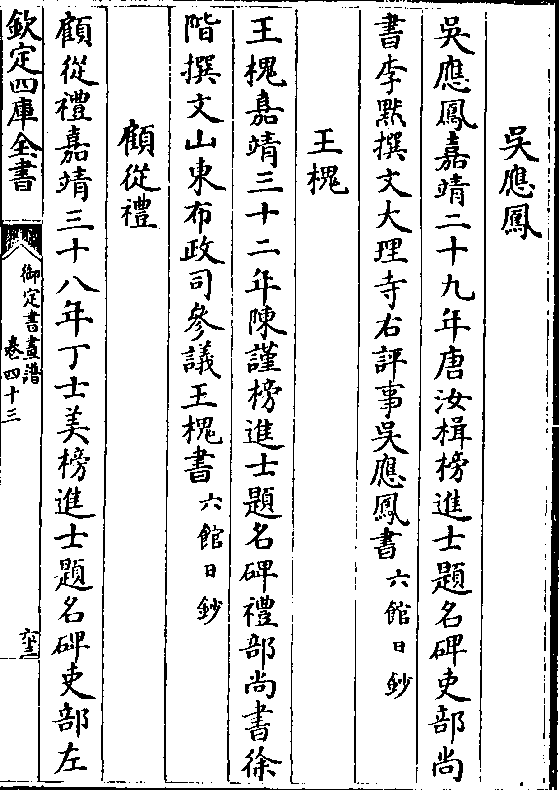 吳應鳳
吳應鳳嘉靖二十九年唐汝楫榜進士題名碑吏部尚
書李黙撰文大理寺右評事吳應鳳書六館日鈔
王槐
王槐嘉靖三十二年陳謹榜進士題名碑禮部尚書徐
階撰文山東布政司參議王槐書六館日鈔
顧從禮
顧從禮嘉靖三十八年丁士美榜進士題名碑吏部左
欽定四庫全書
御定書畫譜
卷四十三